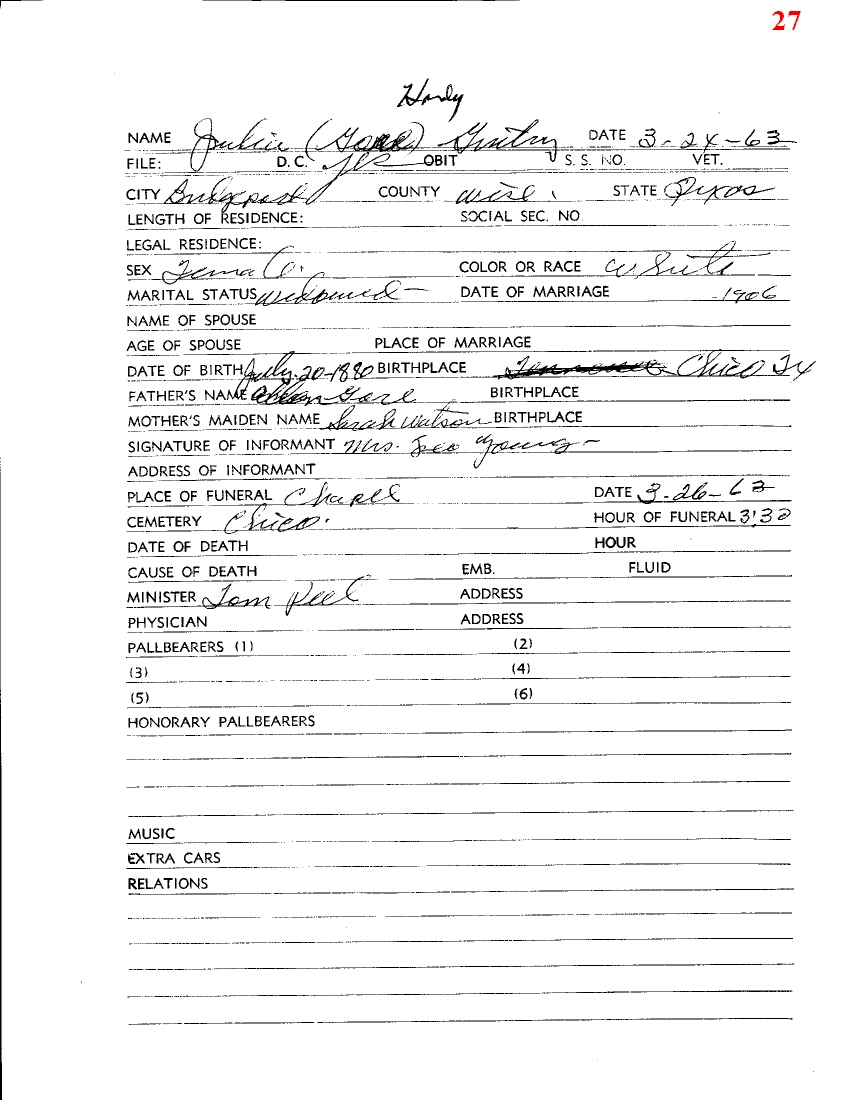 27
Hardy
NAME Julia (Gore) Gentry DATE 3-24-63
FILE: D.C. yes OBIT S. S. NO. VET.
CITY Bridgeport COUNTY Wise STATE Texas
LENGTH OF RESIDENCE: SOCIAL SEC. NO
LEGAL RESIDENCE:
SEX Female. COLOR OR RACE White
MARITAL STATUS widowed — DATE OF MARRIAGE 1906
NAME OF SPOUSE
AGE OF SPOUSE PLACE OF MARRIAGE
DATE OF BIRTH July-20-1880 BIRTHPLACE Tennessee Chico Tx
FATHER'S NAME Gore BIRTHPLACE
MOTHER'S MAIDEN NAME Sarah Watson BIRTHPLACE
SIGNATURE OF INFORMANT Mrs. Young —
ADDRESS OF INFORMANT
PLACE OF FUNERAL Chapel DATE 3-26-63
CEMETERY Chico. HOUR OF FUNERAL 3:30
DATE OF DEATH HOUR
CAUSE OF DEATH EMB. FLUID
MINISTER Tom Peel ADDRESS
PHYSICIAN ADDRESS
PALLBEARERS (1) (2)
(3) (4)
(5) (6)
HONORARY PALLBEARERS
MUSIC
EXTRA CARS
RELATIONS